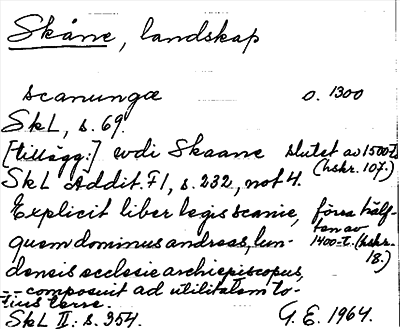 Skåne, landskap
scanungæ o. 1300
SkL, s. 69.
[tillägg:] wdi Skaane slutet av 1500-t.
(hskr. 107.)
SkL Addit. F1, s. 232, not 4.
Explicit liber legis scanie, förra hälf-
quem dominus andreas, lun- ten av
1400-t. (hskr.
densis ecclesie archiepiscopus, 18.)
-- composuit ad utilitatem to-
tius terre.
SkL II: s. 354. G. E. 1964.